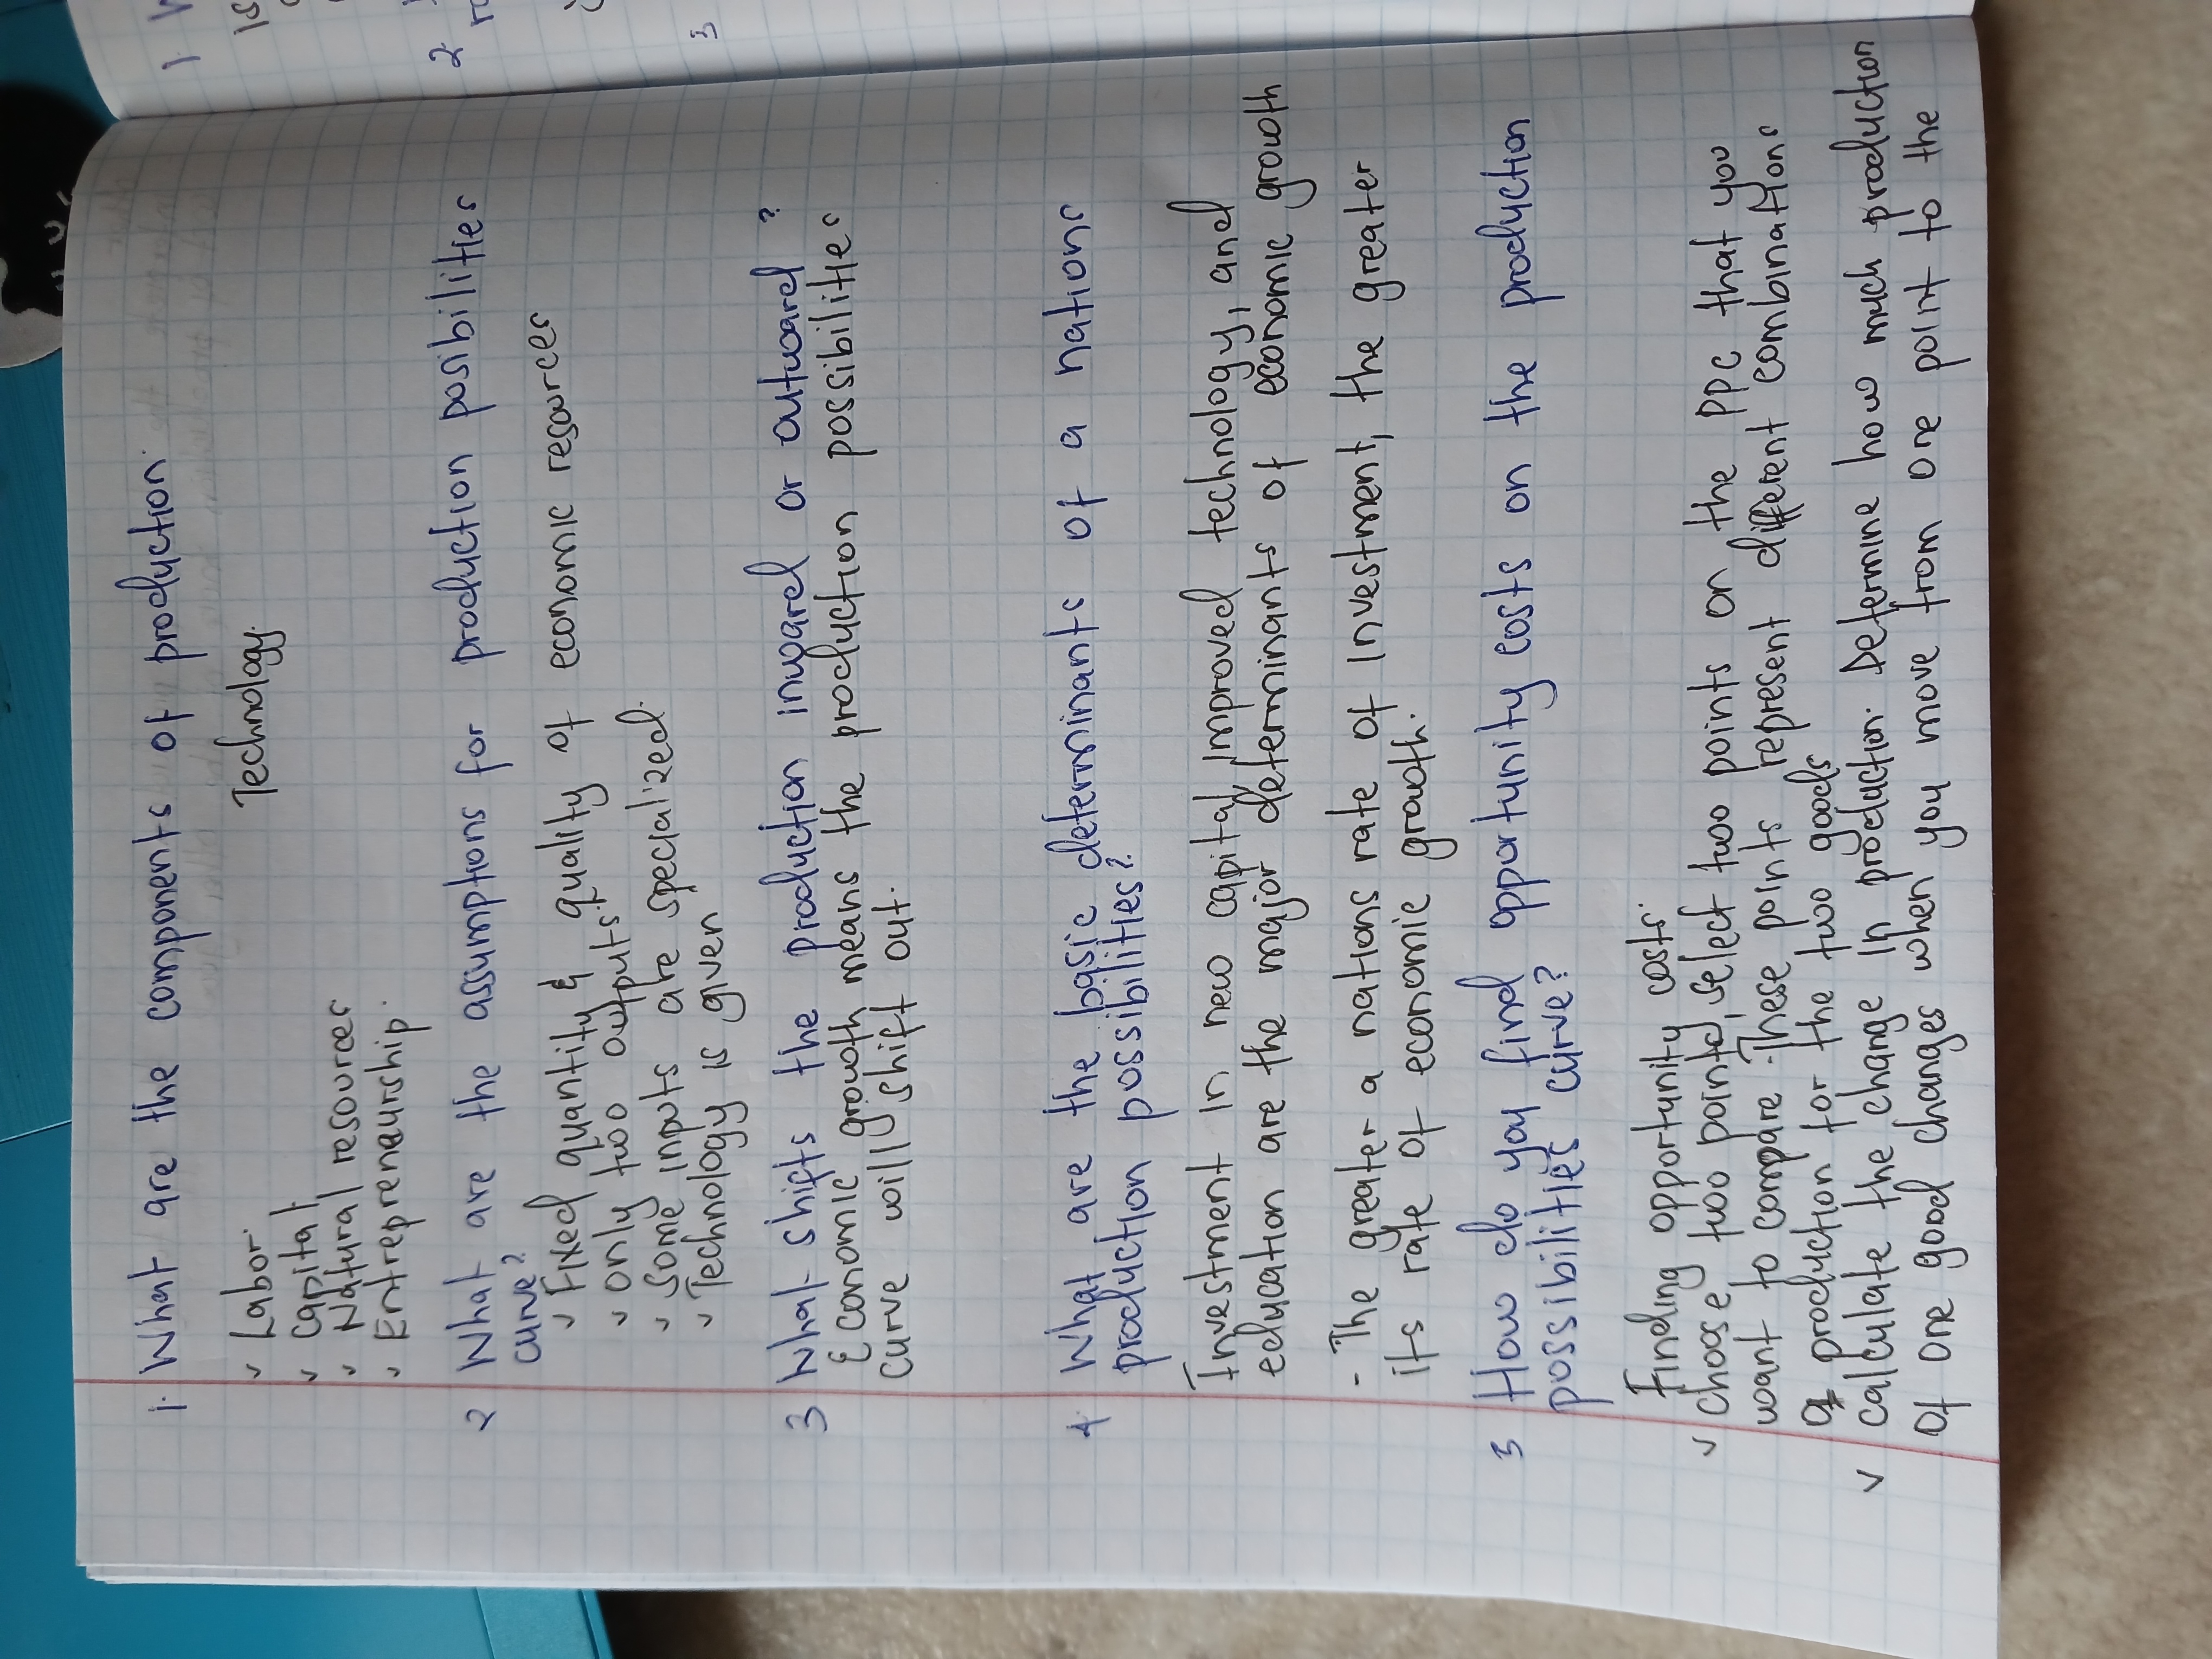 1. What are the components of production.
✓ Labor. Technology.
✓ Capital
✓ Natural resources
✓ Entrepreneurship.
2 What are the assumptions for production posibilities
curve?
✓ Fixed quantity & quality of economic resources
✓ only two outputs.
✓ Some inputs are specialized.
✓ Technology is given
3 What shifts the production inward or outward?
Economic growth means the production possibilities
curve will shift out.
4 What are the basic determinants of a nations
production possibilities?
Investment in new capital, improved technology, and
education are the major determinants of economic growth
- The greater a nations rate of investment, the greater
its rate of economic growth.
5 How do you find opportunity costs on the production
possibilities curve?
Finding opportunity costs.
✓ choose two pointd, select two points on the PPC that you
want to compare. These points represent different combinations
of production for the two goods
✓ calculate the change in production. Determine how much production
of one good changes when you move from one point to the
1
2
3